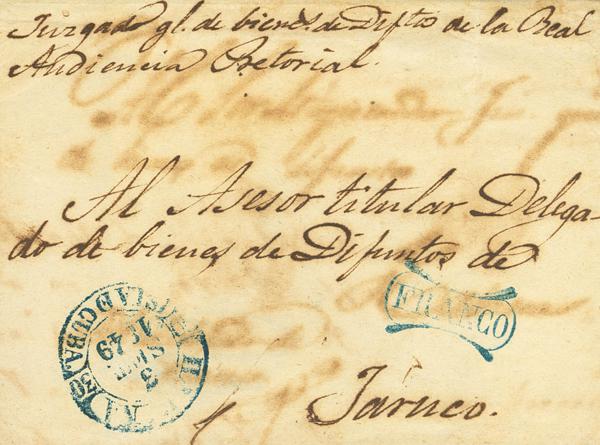 Juzgado gl. de bienes. de Diftos de la Real
Audiencia Pretorial.
Al Asesor titular Delega-
do de bienes de Difuntos de
FRANCO
ISLA D CUBA
49
Jaruco.